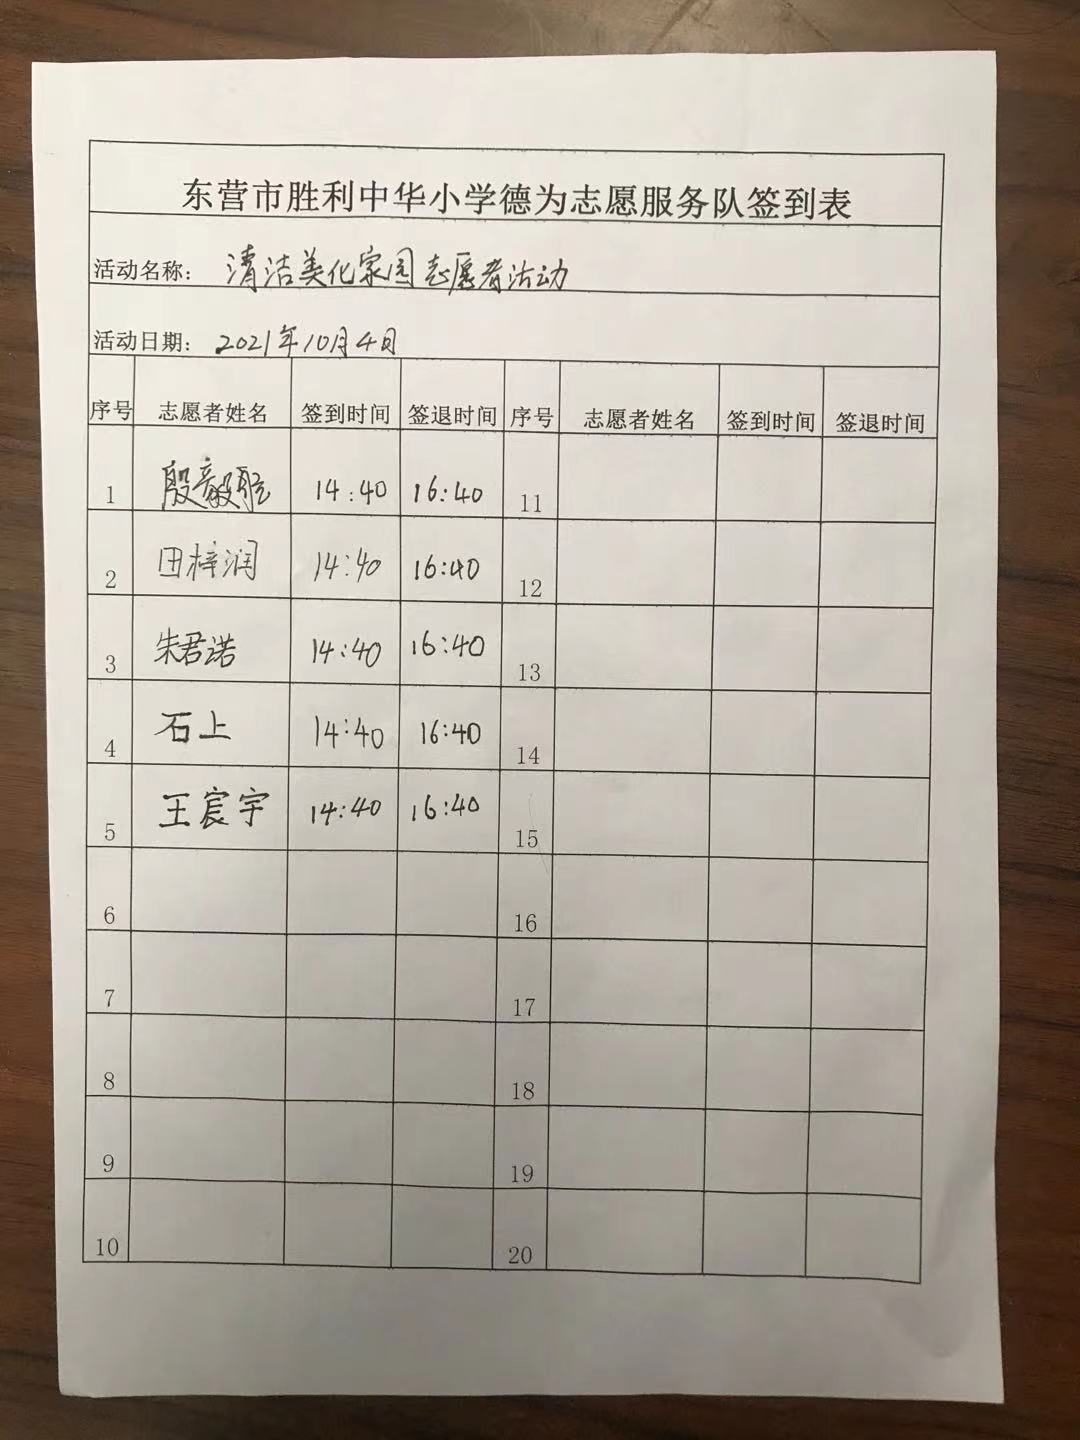 东营市胜利中华小学德为志愿服务队签到表
活动名称： 清洁美化家园志愿者活动
活动日期： 2021年10月4日
序号 志愿者姓名 签到时间 签退时间 序号 志愿者姓名 签到时间 签退时间
1 殷毅 14:40 16:40 11
2 田梓润 14:40 16:40 12
3 朱君诺 14:40 16:40 13
4 石上 14:40 16:40 14
5 王宸宇 14:40 16:40 15
6 16
7 17
8 18
9 19
10 20